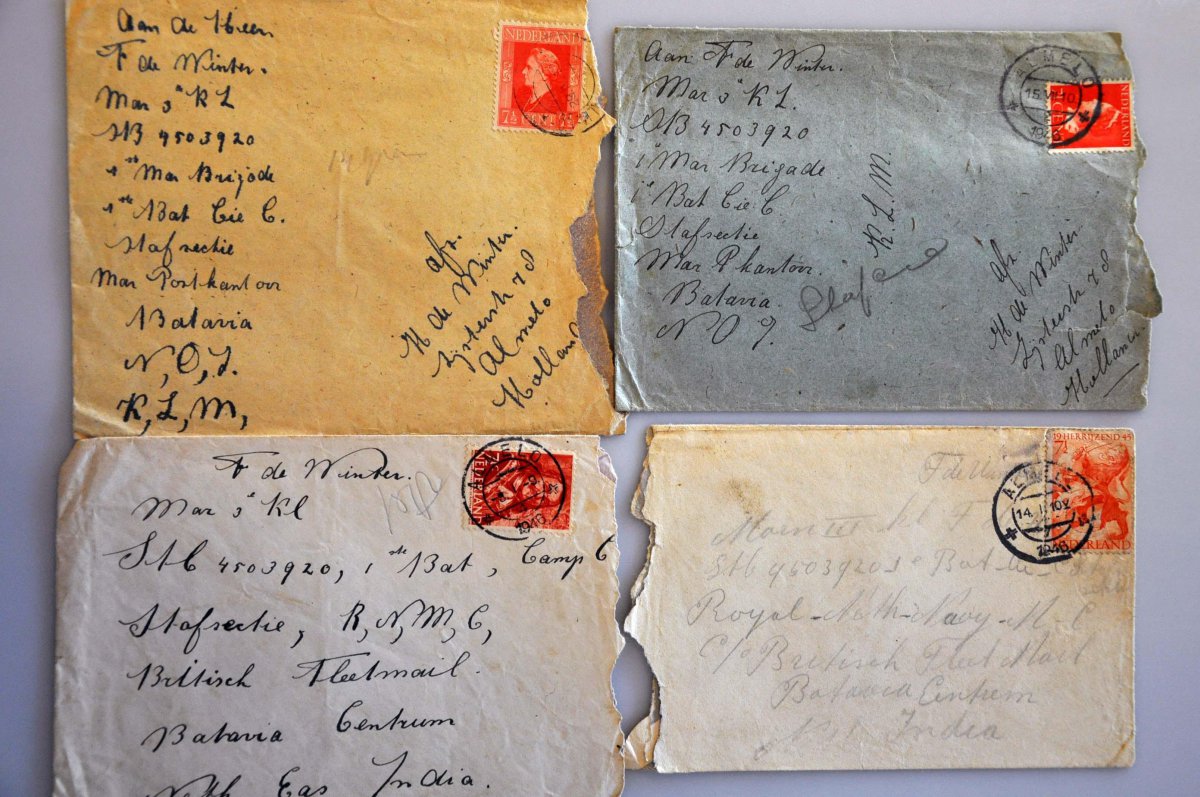 Aan de Heer
F de Winter.
Mar 3e KL
STB 4503920
1ste Mar Brigade
1ste Bat Cie C.
Stafsectie
Mar Postkantoor
Batavia
N,O,I.
K,L,M,
NEDERLAND
7½ CENT 7½
afz.
H de Winter.
78
Almelo
Holland
Aan F de Winter.
Mar 3e KL.
STB 4503920
1e Mar Brigade
1e Bat Cie C
Stafsectie
Mar P kantoor.
Batavia
N O I.
K.L.M.
ALMELO
15.VI 10
1946
NEDERLAND
afz
H de Winter
78
Almelo
Holland
F de Winter.
Mar 3e Kl
Stb 4503920, 1ste Bat, Camp C
Stafsectie, R,N,M,C,
Britisch Fleetmail.
Batavia Centrum
Neth Eas India.
ALMELO
1946
NEDERLAND
F de Win
Marn III kl
Stb 4503920 1e Bat
Royal-Neth-Navy-M-C
C/o Britisch Fleet Mail
Batavia Centrum
India
19 HERRIJZEND 45
7½
NEDERLAND
ALMELO
14.I 10
1946